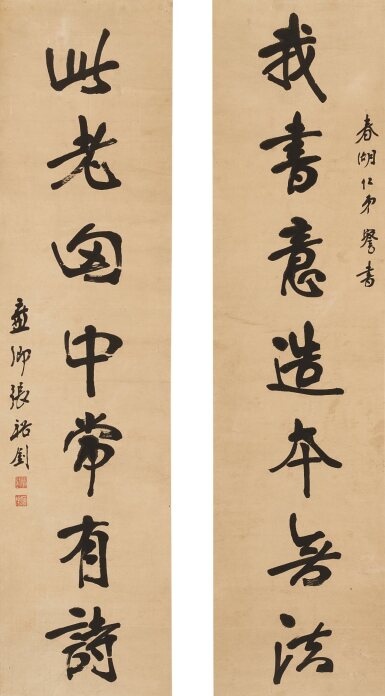 春湖仁弟譽書
我書意造本無法
此老胷中常有詩
廉卿張裕釗